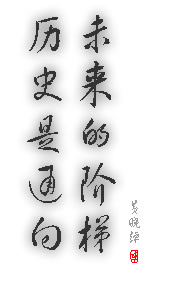 历史是通向
未来的阶梯